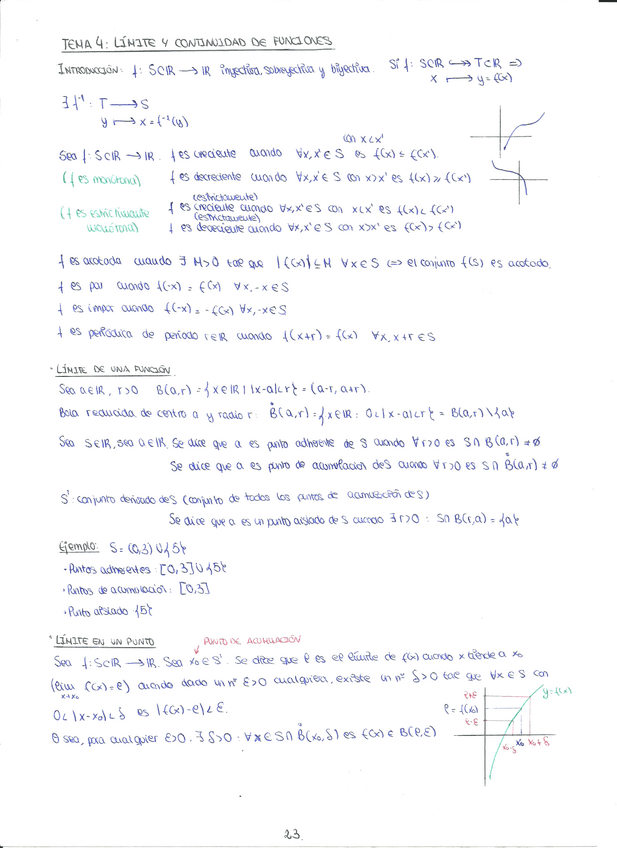 TEMA 4: LÍMITE Y CONTINUIDAD DE FUNCIONES
INTRODUCCIÓN: f: S⊂ℝ → ℝ inyectiva, sobreyectiva y biyectiva. Si f: S⊂ℝ ↔ T⊂ℝ =>
x ↦ y = f(x)
∃ f⁻¹: T → S
y ↦ x = f⁻¹(y)
con x<x'
Sea f: S⊂ℝ → ℝ. f es creciente cuando ∀x,x'∈S es f(x) ≤ f(x').
(f es monótona) f es decreciente cuando ∀x,x'∈S con x>x' es f(x) ≥ f(x')
(estrictamente)
(f es estrictamente f es creciente cuando ∀x,x'∈S con x<x' es f(x) < f(x')
(estrictamente)
monótona) f es decreciente cuando ∀x,x'∈S con x>x' es f(x) > f(x')
f es acotada cuando ∃ M>0 tal que |f(x)| ≤ M ∀x∈S <=> el conjunto f(S) es acotado.
f es par cuando f(-x) = f(x) ∀x,-x∈S
f es impar cuando f(-x) = -f(x) ∀x,-x∈S
f es periódica de periodo r∈ℝ cuando f(x+r) = f(x) ∀x, x+r∈S
· LÍMITE DE UNA FUNCIÓN
Sea a∈ℝ, r>0 B(a,r) = {x∈ℝ | |x-a|<r} = (a-r, a+r).
Bola reducida de centro a y radio r: B̊(a,r) = {x∈ℝ: 0<|x-a|<r} = B(a,r)\{a}
Sea S∈ℝ, sea a∈ℝ. Se dice que a es punto adherente de S cuando ∀r>0 es S∩B(a,r) ≠ ∅
Se dice que a es punto de acumulación de S cuando ∀r>0 es S∩B̊(a,r) ≠ ∅
S': conjunto derivado de S (conjunto de todos los puntos de acumulación de S)
Se dice que a es un punto aislado de S cuando ∃r>0 : S∩B(r,a) = {a}
Ejemplo: S = (0,3)∪{5}
· Puntos adherentes: [0,3]∪{5}
· Puntos de acumulación: [0,3]
· Punto aislado {5}
· LÍMITE EN UN PUNTO PUNTO DE ACUMULACIÓN
Sea f: S⊂ℝ → ℝ. Sea x₀∈S'. Se dice que l es el límite de f(x) cuando x tiende a x₀
(lim f(x) = l) cuando dado un nº ε>0 cualquiera, existe un nº δ>0 tal que ∀x∈S con
x→x₀
0<|x-x₀|<δ es |f(x)-l|<ε.
O sea, para cualquier ε>0, ∃ δ>0 : ∀x∈S∩B̊(x₀,δ) es f(x)∈B(l,ε)
y=f(x)
l+ε
l = f(x₀)
l-ε
x₀-δ x₀ x₀+δ
23.